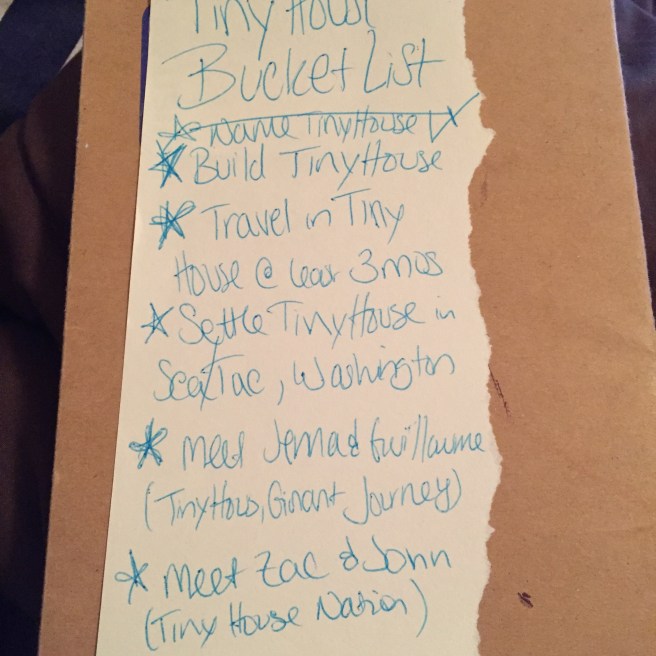 Tiny House
Bucket List
Name Tiny House
Build Tiny House
Travel in Tiny
House @ least 3 mos
Settle Tiny House in
SeaTac, Washington
Meet Jenna & Guillaume
(Tiny Hous, Ginant Journey)
Meet Zac & John
(Tiny House Nation)